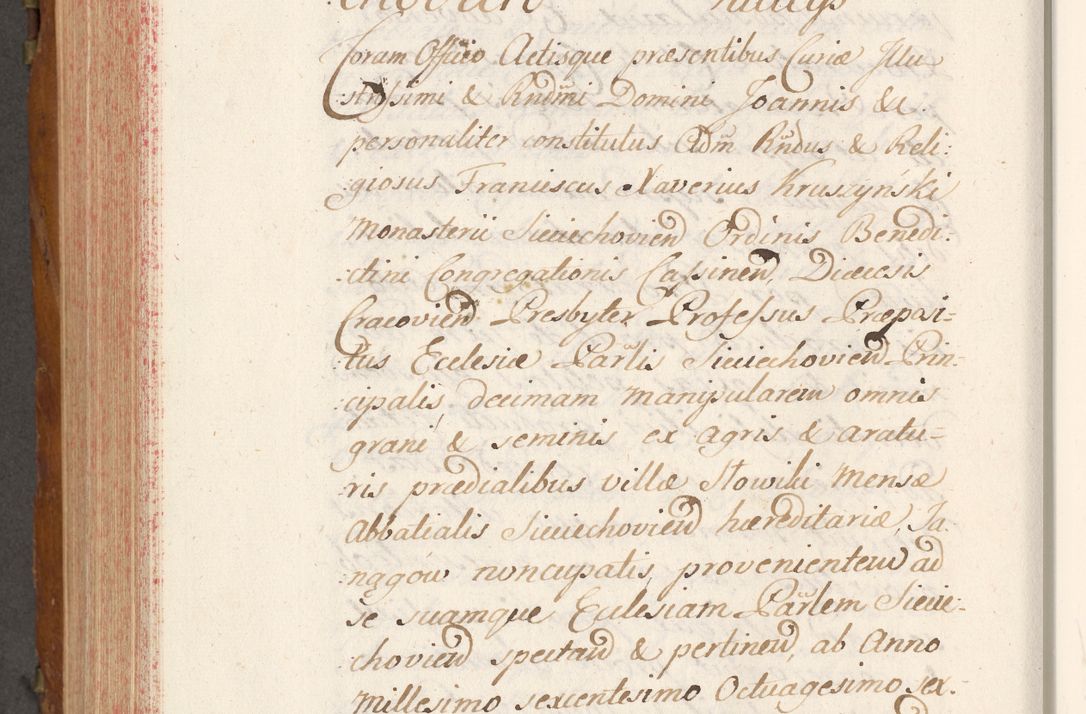 Coram Officio Actisque præsentibus Curiæ Illu
strissimi & Rndmi Domini Joannis &c.
personaliter constitutus Adm Rndus & Reli:
giosus Franciscus Xaverius Kruszyński
Monasterii Sieciechovien Ordinis Benedi:
ctini Congregationis Cassinen, Diæcesis
Cracovien Presbyter Professus Præposi=
tus Ecclesiæ Parlis Sieciechovien Prin:
cipalis, decimam manipularem omnis
grani & seminis ex agris & aratu=
ris prædialibus villæ Słowiki Mensæ
Abbatialis Sieciechovien hæreditariæ, Za
nagow nuncupatis, provenientem ad
se suamque Ecclesiam Parlem Siecie:
chovien spectan & pertinen, ab Anno
Millesimo sexcentesimo Octuagesimo sex.